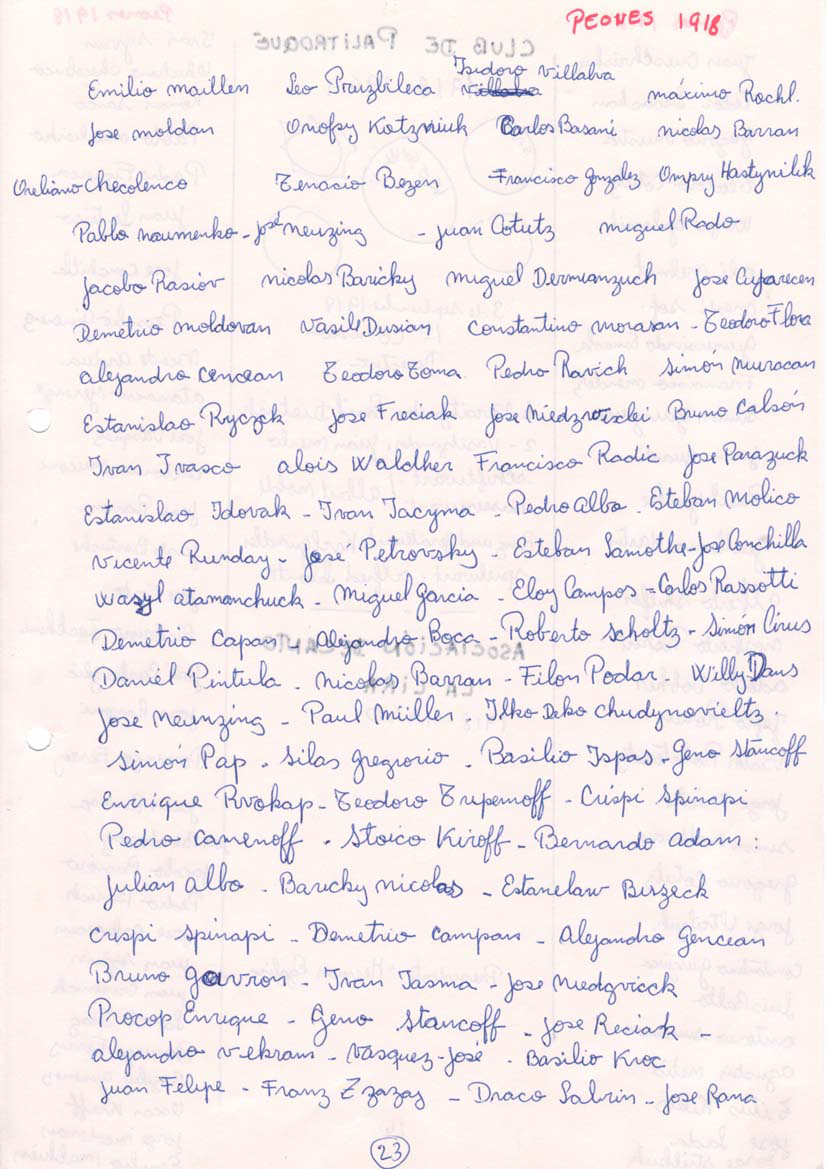 PEONES 1918
Emilio maillen Leo Pruzbileca Isidoro Villalva máximo Rochl.
Jose moldan Onofry Katzniuk Carlos Basani nicolas Barran
Checolenco Tenacio Bezen Francisco gonzalez Ompry Hastynilik
Pablo naumenko - José Neuzing - juan Cotutz miguel Rado
jacobo Rasiov nicolas Baricky miguel Dermianzuch jose Cuparecen
Demetrio moldovan Vasile Dusian Constantino morasan - Teodoro Flora
alejandro Cencean Teodoro Toma Pedro Ravich Simón Muracan
Estanislao Ryczek jose Freciak jose Niedzwisclei Bruno Calsón
Ivan Ivasco alois Waldher Francisco Radic jose Parazuck
Estanislao Idovak - Ivan Tacyma - Pedro Alba. Esteban Molico
Vicente Runday - Jose Petrovsky - Esteban Samothe - Jose Conchilla
Wasyl atamanchuck - Miguel Garcia - Eloy Campos - Carlos Rassotti
Demetrio Capan - Alejandro Boca - Roberto Scholtz - Simón Cirus
Daniel Pintula - Nicolas Barran - Filon Podar - Willy Daus
Jose Neunzing - Paul Müller - Ilko Dako Chudynovieltz.
Simón Pap - Silas gregrorio - Basilio Ispas - Geno Stancoff
Enrrique Rvokap - Teodoro Trepemoff - Crispi Spinapi
Pedro Camenoff - Stoico Kiroff - Bernardo Adam :
Julian Albo - Baricky nicolas - Estanelaw Biszeck
Crispi Spinapi - Demetrio Campan - Alejandro Gencean
Bruno gavron - Ivan Tasma - Jose Niedgvicck
Procop Enrique - Geno Stancoff - Jose Reciak -
alejandro Vekrans - Vasquez - José - Basilio Kroc
Juan Felipe - Franz Zzazay - Draco Salvin - Jose Rana
23